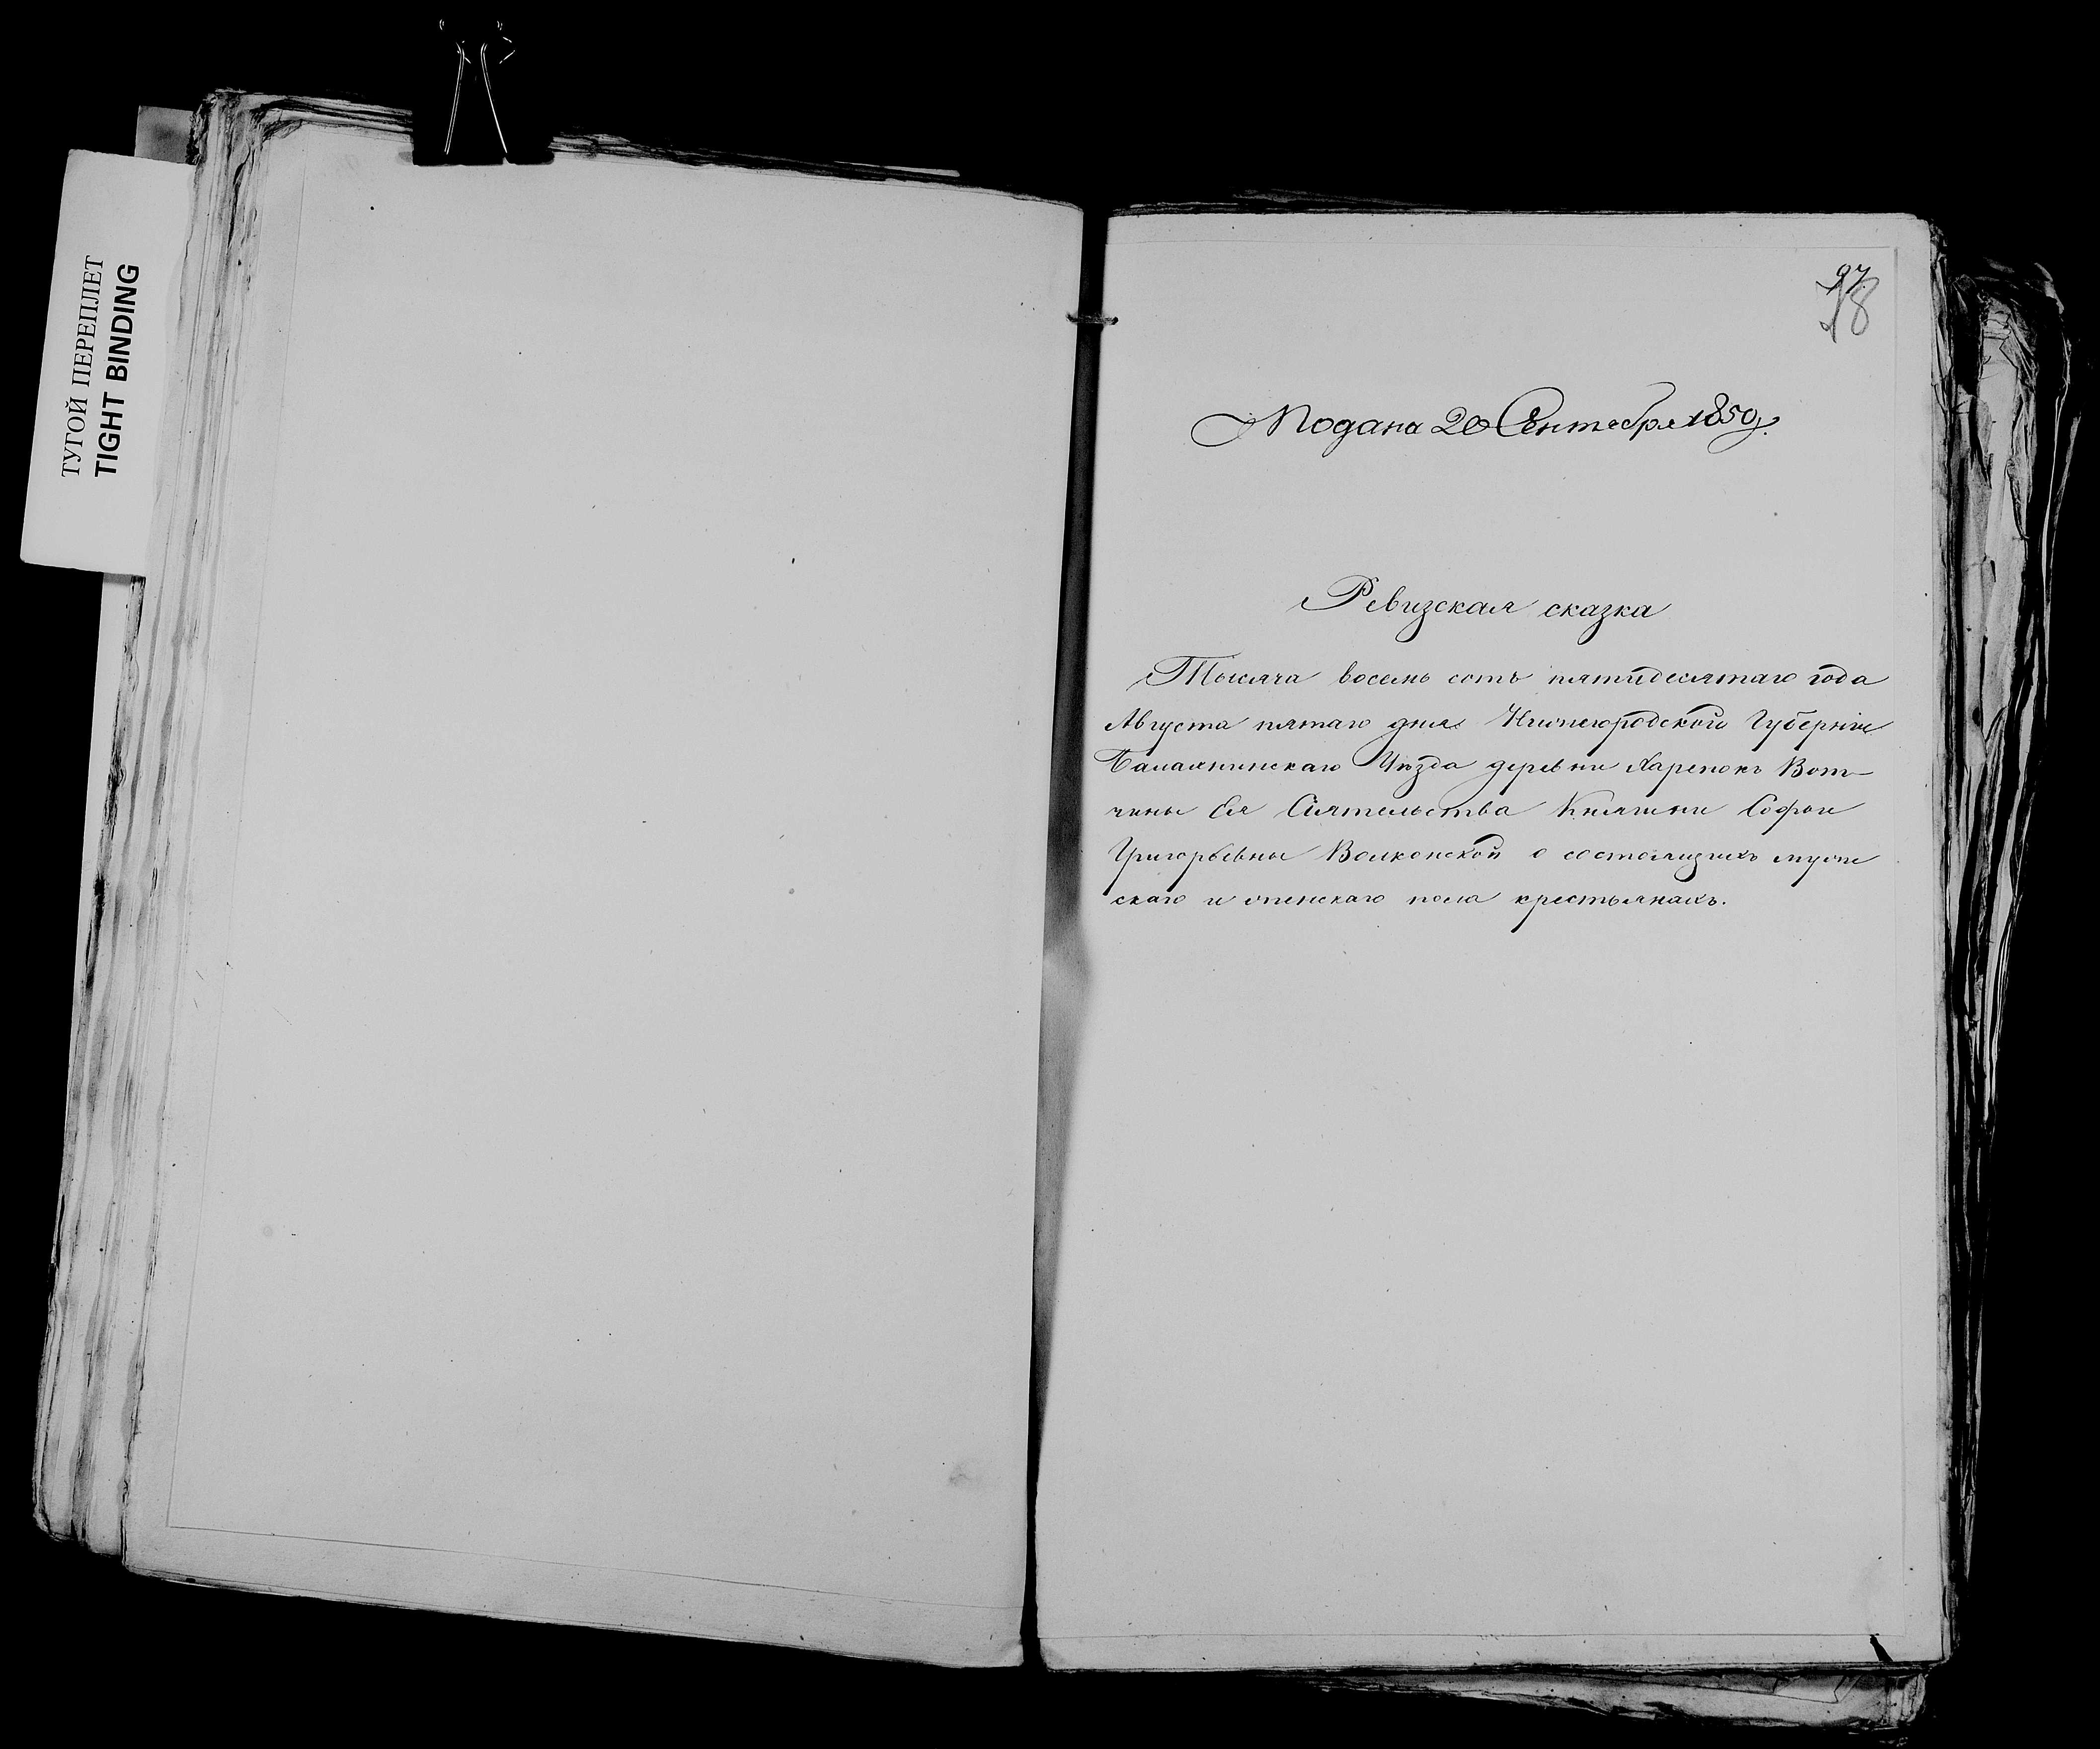 ТУГОЙ ПЕРЕПЛЕТ
TIGHT BINDING
97
Подана 20 Сентября 1850 г.
Ревизская сказка
Тысяча восемь сотъ пятидесятаго года
Августа пятаго дня Нижегородской Губерніи
Балахнинскаго Уѣзда деревни Вот-
чины Ея Сіятельства Княгини Софьи
Григорьевны Волконской о состоящихъ муже
скаго и женскаго пола крестьянахъ.